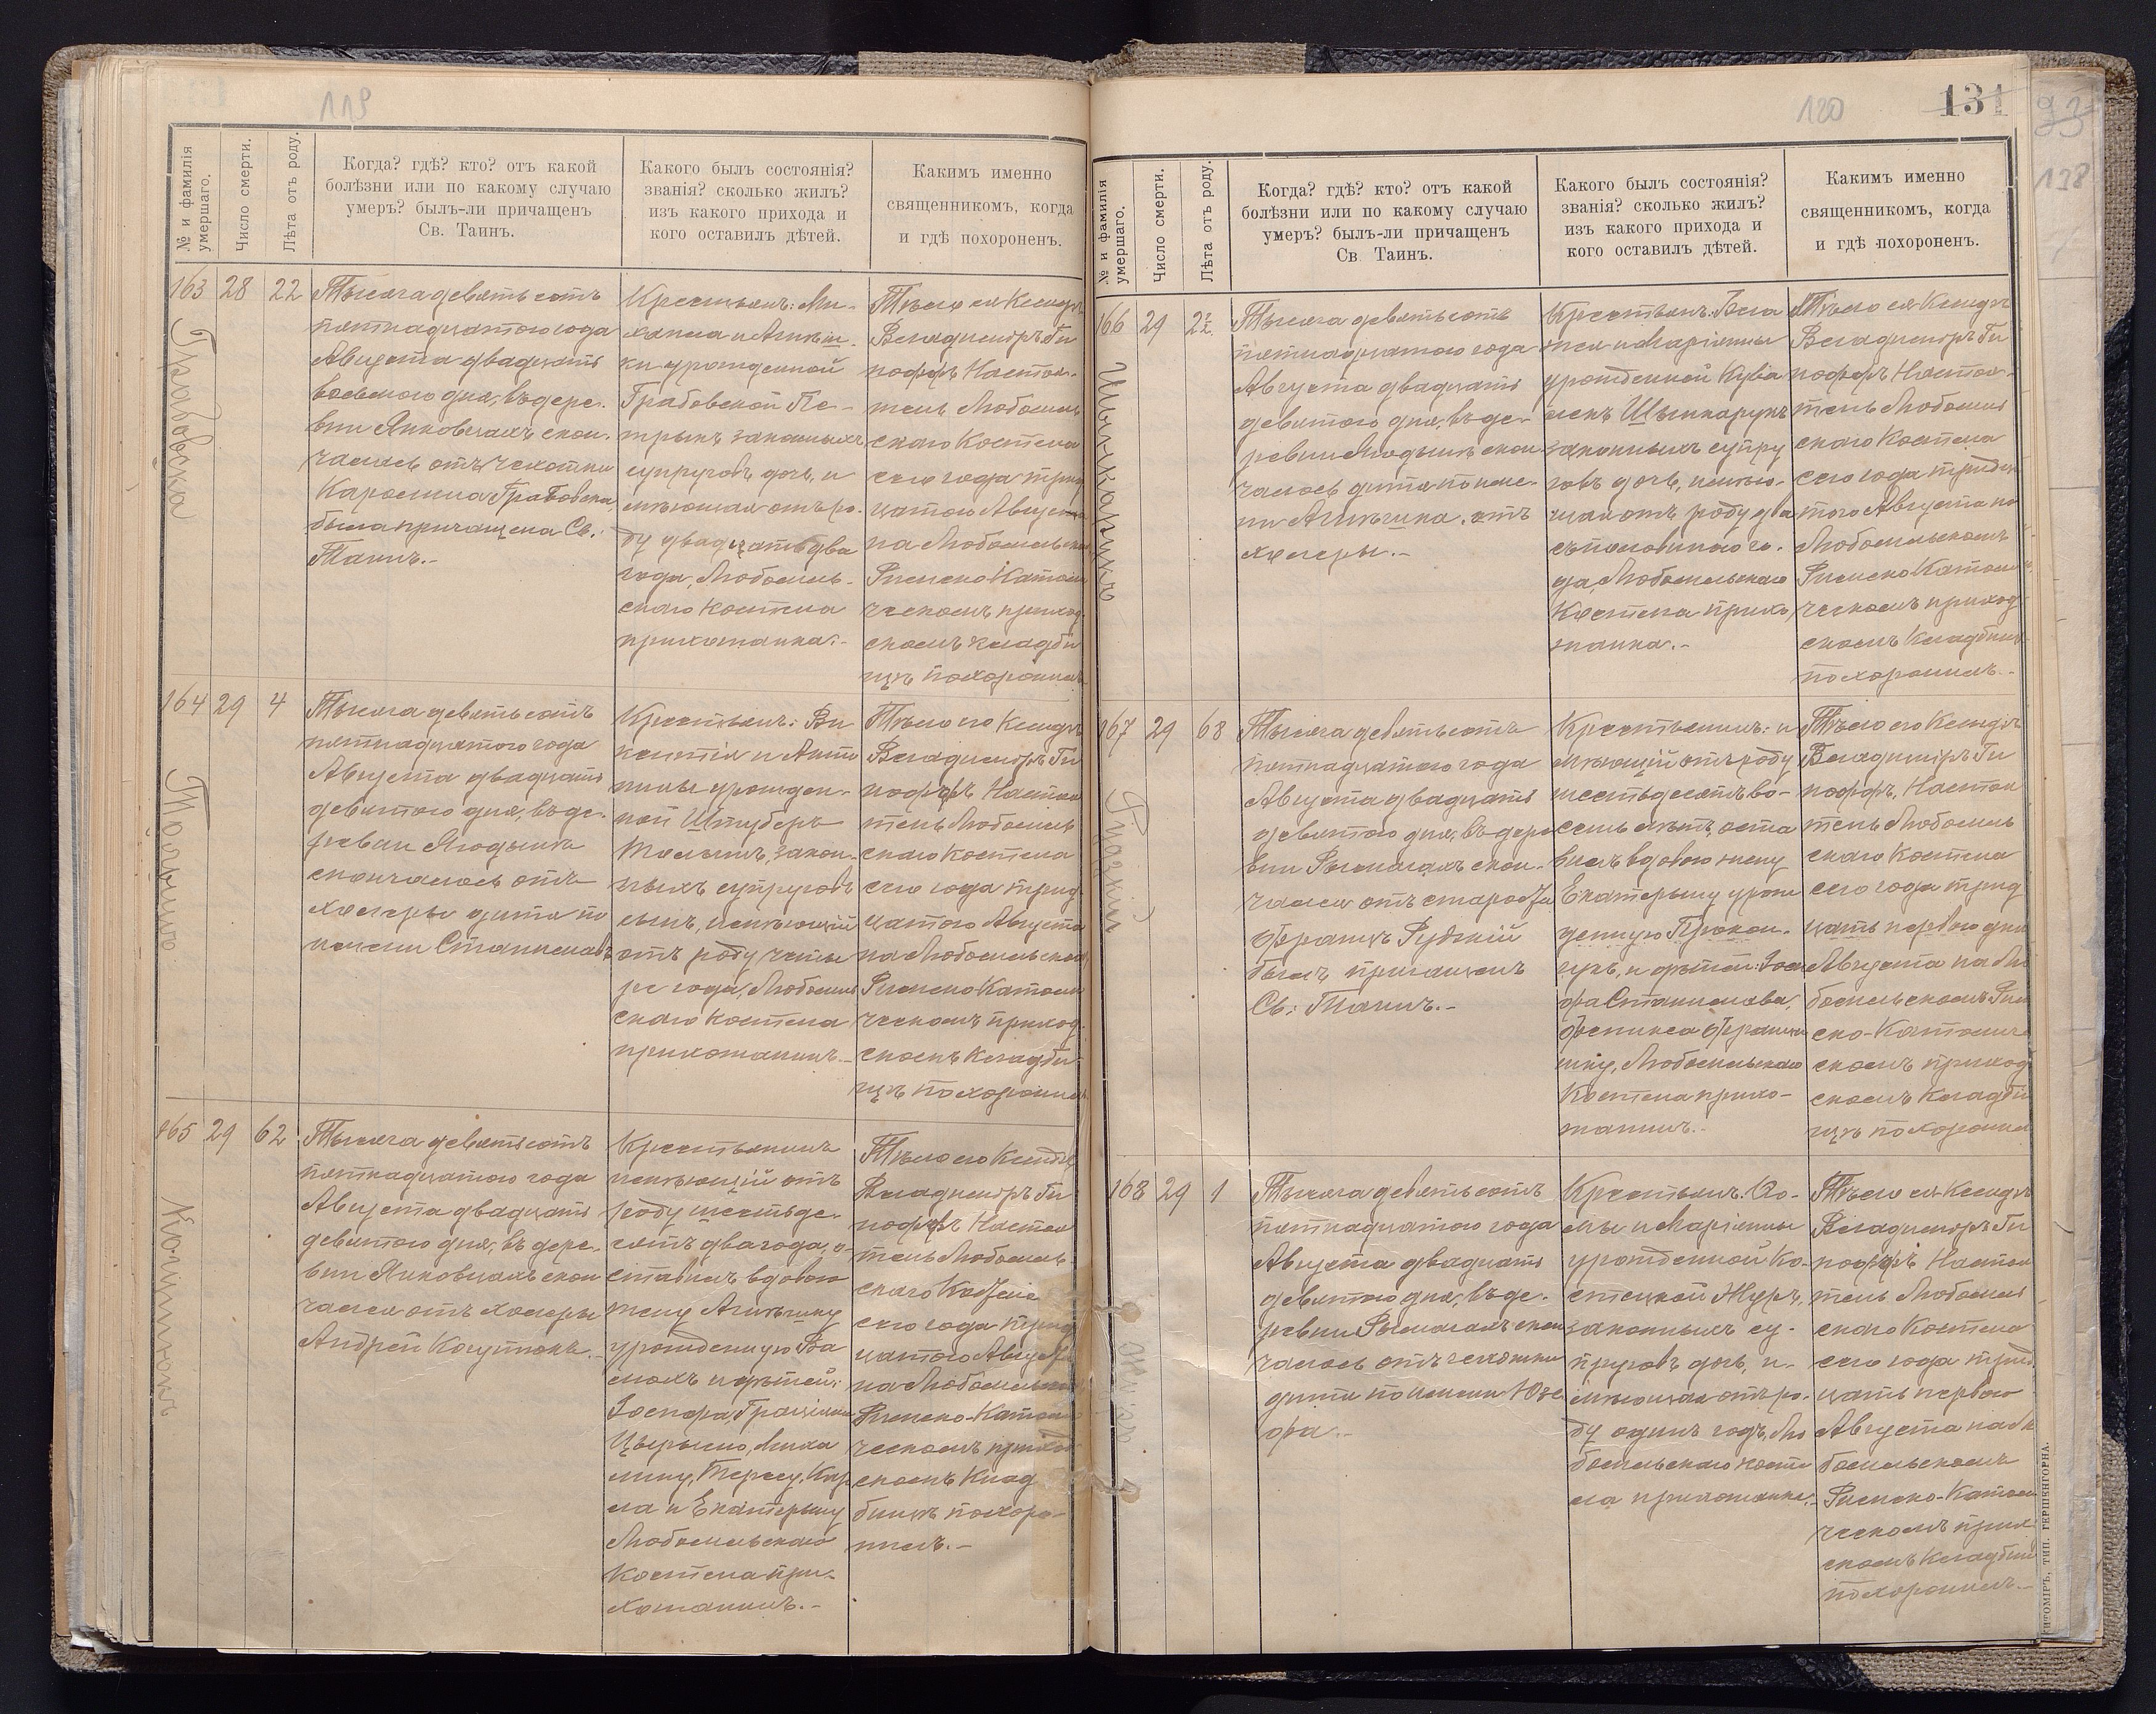 119
№ и фамилія умершаго.
Число смерти.
Лѣта отъ роду.
Когда? гдѣ? кто? отъ какой
болѣзни или по какому случаю
умеръ? былъ-ли причащенъ
Св. Таинъ.
Какого былъ состоянія?
званія? сколько жилъ?
изъ какого прихода и
кого оставилъ дѣтей.
Какимъ именно
священникомъ, когда
и гдѣ похороненъ.
163 28 22
Грабовска
Тысяча девятьсотъ
пятнадцатого года
Августа двадцать
восьмого дня, въ дере-
вни Янковцахъ скон-
чалась отъ чахотки
Каролина Грабовска,
была причащена Св.
Таинъ.-
Крестьянъ: Ми-
хаила и
ки урожденной
Грабовской Пе-
трыкъ законныхъ
супруговъ дочь, и
мѣющая отъ ро-
ду двадцать два
года, Любомль-
скаго костела
прихожанка.-
Тѣло ея Ксендзъ
Владиміръ Ги
поффъ Настоя-
тель Любомль
скаго Костела
сего года трид
цатого Августа
на Любомльском
Римско Католи
ческомъ приход
скомъ кладби
щѣ похоронилъ
164 29 4
Тысяча девятьсотъ
пятнадцатого года
Августа двадцать
девятого дня, въ де-
ревни Ягодынъ
скончалось отъ
холеры дитя по
имени Станиславъ
Крестьянъ: Ви
кентія и Анто
нины урожден-
ной Штуберъ
законныхъ супруговъ
сынъ, имѣющій
отъ роду четы
ре года, Любомль
скаго костела
прихожанинъ.-
Тѣло его Ксендзъ
Владиміръ Ги
поффъ Настоя
тель Любомль
скаго костела
сего года трид
цатого Августа
на Любомльском
Римско Католи
ческомъ приход
скомъ кладби
щѣ похоронилъ
165 29 62
Тысяча девятьсотъ
пятнадцатого года
Августа двадцать
девятого дня, въ дере-
вни Янковцахъ скон
чался отъ холеры
Андрей
Крестьянинъ
имѣющій отъ
роду шестьде-
сятъ два года, о-
ставилъ вдовою
жену
урожденную
и дѣтей:
Іосифа,
Терезу,
и Екатерину
Любомльскаго
Костела при-
хожанинъ.-
Тѣло его Ксендзъ
Владиміръ Ги
поффъ Настоя
тель Любомль
скаго Костела
сего года трид
цатого Августа
на Любомльском
Римско-Католи
ческомъ приход
скомъ Клад
бищѣ похоро-
нилъ.-
120
131
93
138
№ и фамилія умершаго.
Число смерти.
Лѣта отъ роду.
Когда? гдѣ? кто? отъ какой
болѣзни или по какому случаю
умеръ? былъ-ли причащенъ
Св. Таинъ.
Какого былъ состоянія?
званія? сколько жилъ?
изъ какого прихода и
кого оставилъ дѣтей.
Какимъ именно
священникомъ, когда
и гдѣ похороненъ.
166 29 2½
Тысяча девятьсотъ
пятнадцатого года
Августа двадцать
девятого дня, въ де-
ревни Ягодынъ скон
чалось дитя по име-
ни отъ
холеры.-
Крестьянъ:
и Маріанны
урожденной
законныхъ супру
говъ дочь, имѣю-
щая отъ роду два
съ половиною го-
да, Любомльскаго
Костела прихо
жанка.-
Тѣло ея Ксендзъ
Владиміръ Ги
поффъ Настоя-
тель Любомль
скаго Костела
сего года тридца
того Августа на
Любомльскомъ
Римско Католи
ческомъ приход
скомъ Кладбищѣ
похоронилъ.-
167 29 68
Тысяча девятьсотъ
пятнадцатого года
Августа двадцать
девятого дня, въ дере
вни Рымачахъ скон-
чался отъ старости
Францъ Рудзкій
былъ причащенъ
Св: Таинъ.-
Крестьянинъ: и
мѣющій отъ роду
шестьдесятъ во-
семь лѣтъ, оста
вилъ вдовою жену
Екатерину урож
денную
и дѣтей: Іоси
фа Станислава,
Любомльскаго
Костела прихо-
жанинъ.-
Тѣло его Ксендзъ
Владиміръ Ги
поффъ, Настоя
тель Любомль
скаго Костела
сего года трид
цать первого дня
Августа на Лю
бомльскомъ Рим
ско-Католиче
скомъ приход
скомъ Кладби
щѣ похоронилъ
168 29 1
Тысяча девятьсотъ
пятнадцатого года
Августа двадцать
девятого дня, въ де-
ревни Рымачахъ скон
чалось отъ чахотки
дитя по имени Юзе
фа.-
Крестьянъ:
и Маріанны
урожденной
законныхъ су-
пруговъ дочь, и-
мѣющая отъ ро-
ду одинъ годъ, Лю
бомльскаго косте
ла прихожанка.-
Тѣло ея Ксендзъ
Владиміръ Ги
поффъ Настоя
тель Любомль
скаго Костела
сего года трид
цать первого
Августа на Лю
бомльскомъ
Римско-Католи
ческомъ прих
скомъ Кладбищ
похоронилъ.-
ЖИТОМІРЪ, ТИП. ГЕРШЕНГОРНА.